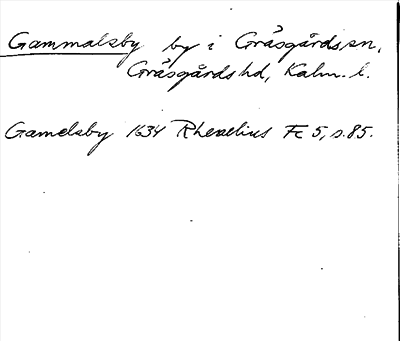 Gammalsby by i Gräsgårds sn,
Gräsgårds hd, Kalm. l.
Gamelsby 1634 Rhezelius Fc 5, s. 85.